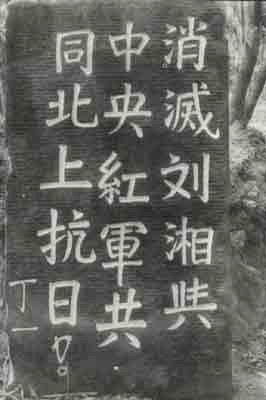 消滅刘湘與
中央紅軍共
同北上抗日
丁一